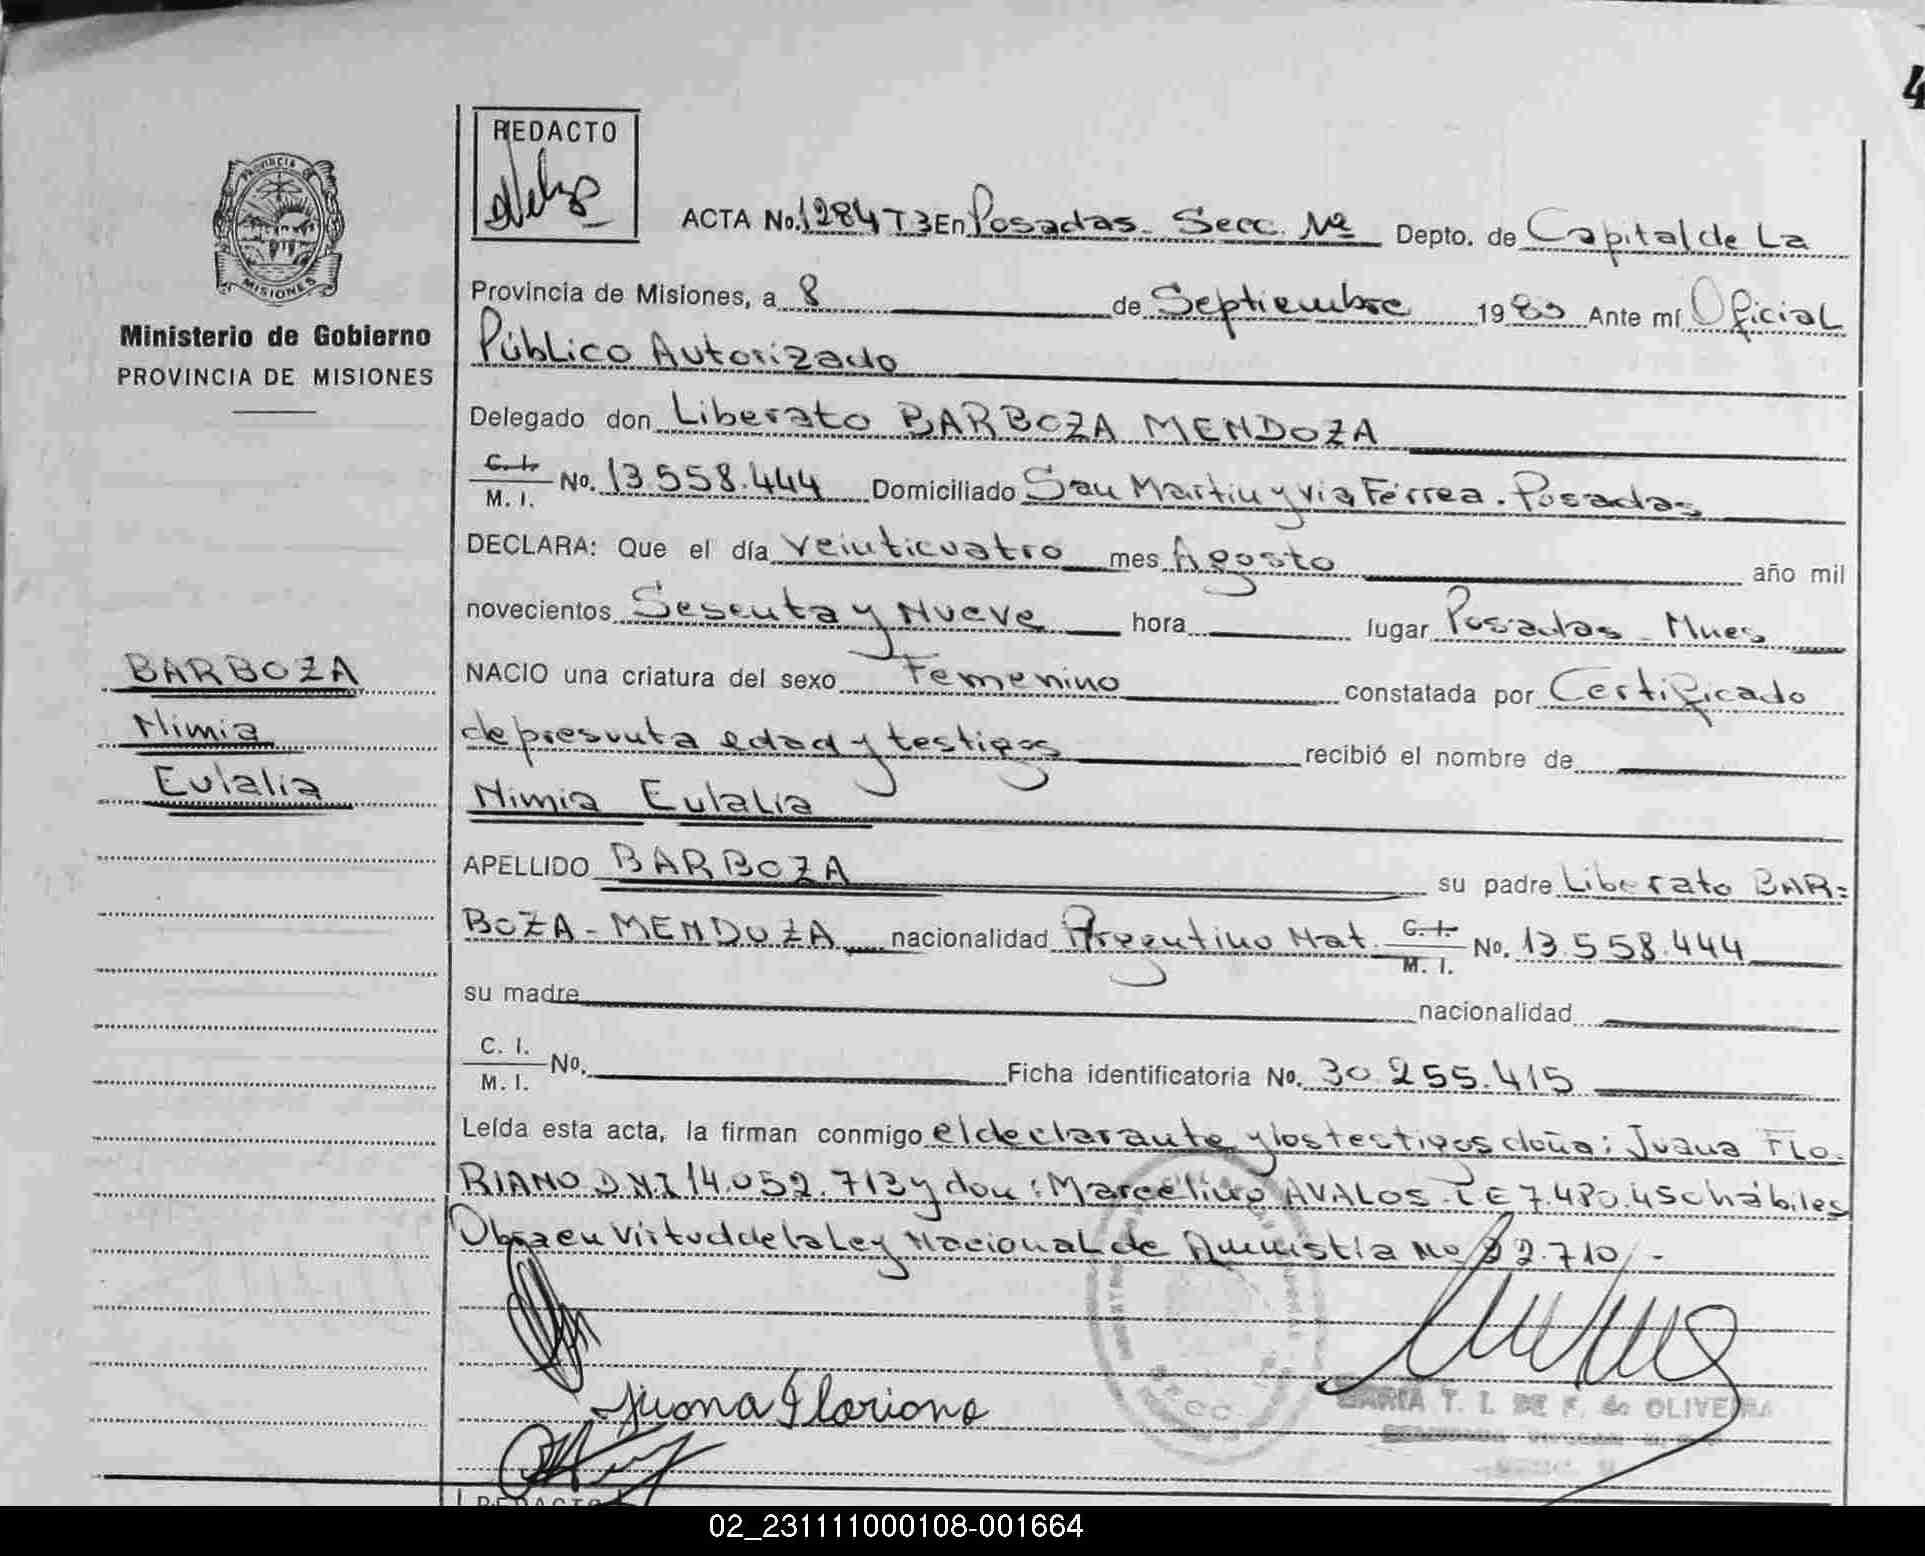 4
REDACTO
PROVINCIA DE
MISIONES
Ministerio de Gobierno
PROVINCIA DE MISIONES
ACTA No. 1284 T3 En Posadas. Secc. Nº Depto. de Capital de La
Provincia de Misiones, a 8 de Septiembre 1983 Ante mí Oficial
Público Autorizado
Delegado don Liberato BARBOZA MENDOZA
C. I. M. I. No. 13.558.444 Domiciliado San Martin y via Ferrea. Posadas
DECLARA: Que el día veinticuatro mes Agosto año mil
novecientos Sesenta y Nueve hora lugar Posadas Mnes
NACIO una criatura del sexo Femenino constatada por Certificado
de presunta edad y testigos recibió el nombre de
Nimia Eulalia
BARBOZA
Nimia
Eulalia
APELLIDO BARBOZA su padre Liberato BAR=
BOZA - MENDOZA nacionalidad Argentino Nat. C. I. M. I. No. 13.558.444
su madre nacionalidad
C. I. M. I. No. Ficha identificatoria No. 30.255.415
Leída esta acta, la firman conmigo el declarante y los testigos doña: Juana FLO.
RIANO D.N.I 14.052.713 y don: Marcelino AVALOS hábiles
Obra en virtud de la Ley Nacional de Amnistía No 22.710 -
Juana Floriano
MARIA T. I. DE F. de OLIVEIRA
REDACTO
02_231111000108-001664